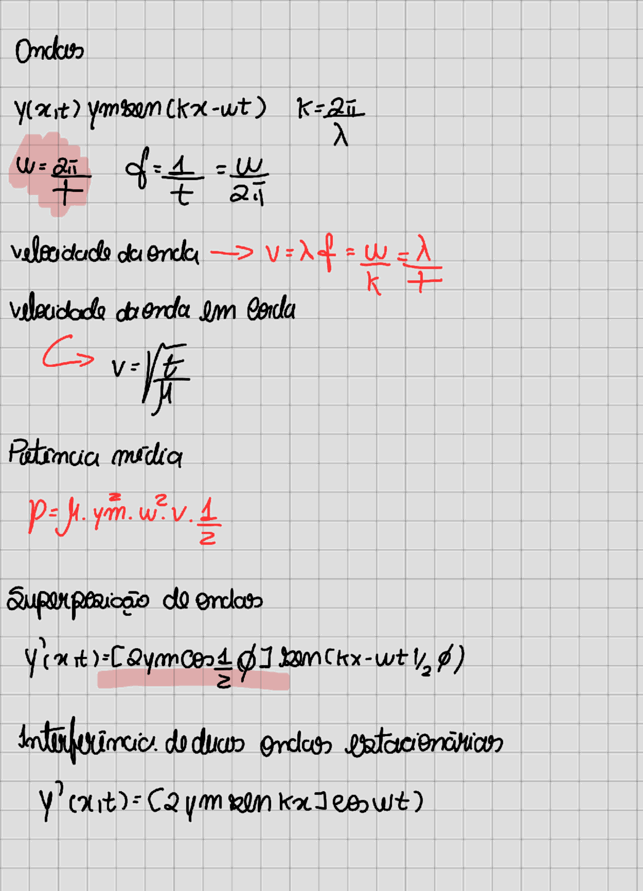 Ondas
y(x,t) ym sen(kx-wt) k=2π/λ
w=2π/T f=1/t=w/2π
velocidade da onda → v=λf=w/k=λ/T
velocidade da onda em corda
↪ v=√t/μ
Potência média
P=μ.ym².w².v.1/2
Superposição de ondas
y'(x,t)=[2ymcos1/2φ]sen(kx-wt 1/2 φ)
Interferência de duas ondas estacionárias
y'(x,t)=[2ym sen kx]coswt)